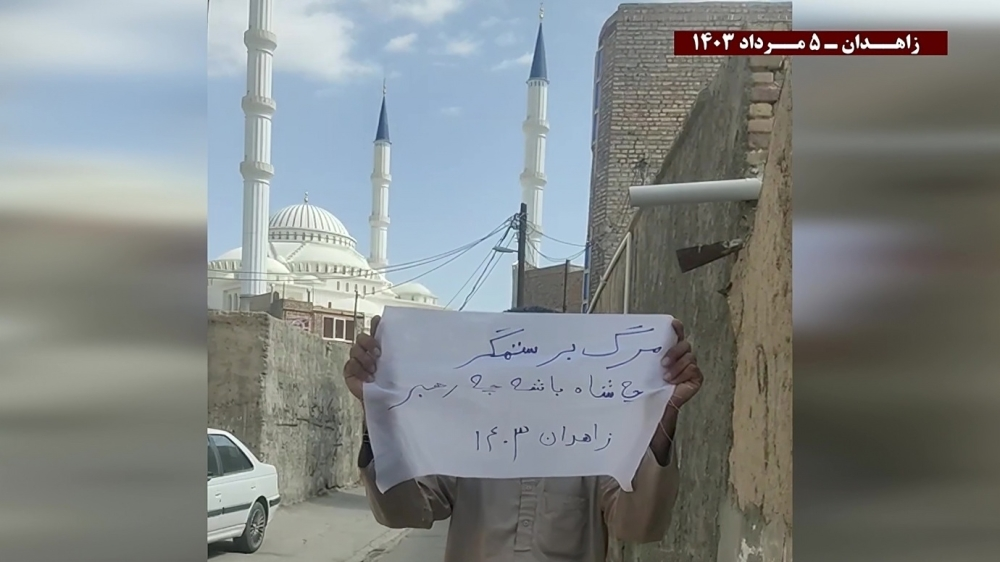 زاهـدان ــ ۵ مـرداد ۱۴۰۳
مرگ بر ستمگر
چه شاه باشه چه رهبر
زاهدان ۱۴۰۳